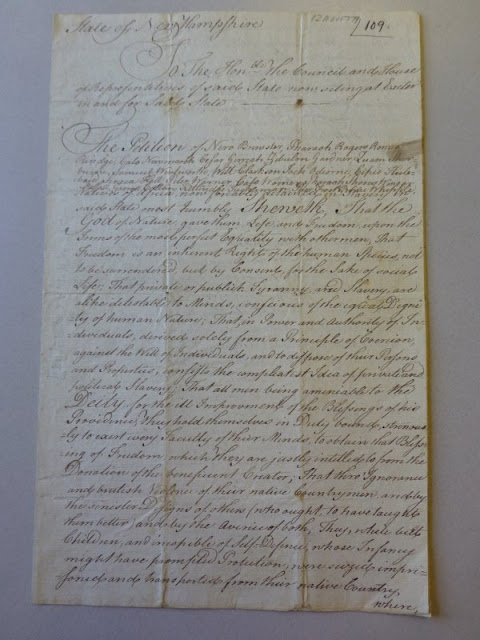 State of New Hampshire
109.
To The Honble The Council and House
of Representatives of said State now siting at Exeter
in and for Said State
The Petition of Nero Brewster, Pharaoh Rogers, Romeo
Rindge, Cato Newmarch, Cesar Gerrish, Zebulon Gardner, Quam Sher-
burne, Samuel Wentworth, Will Clarkson, Jack Odiorne, Cipio Hub-
said State most humbly Sheweth, That the
God of Nature, gave them, Life, and Freedom, upon the
Terms of the most perfect Equality with other men, That
Freedom is an inherent Right of the human Species, not
to be surrendered, but by Consent, for the Sake of social
Life; That private or publick Tyranny, and Slavery, are
alike detestable to Minds, conscious of the equal Digni-
ty of human Nature; That, in Power and Authority of In-
dividuals, derived solely from a Principle of Coercion,
against the Will of Individuals, and to dispose of their Persons
and Properties, consists the compleatest Idea of private and
political Slavery; That all men being ameniable to the
Deity, for the ill Improvement of the Blessings of his
Providence, They hold themselves in Duty bound, strenuous-
ly to exert every Faculty of their Minds, to obtain that Bless-
ing of Freedom which they are justly intitled to from the
Donation of the beneficent Creator; That thro' Ignorance
and brutish Violence of their native Countrymen and by
the sinister Designs of others (who ought to have taught
them better) and by the Avarice of both, They, while but
Children, and incapable of Self-Defence, whose Infancy
might have prompted Protection, were seized, impri-
soned and transported from their native Country,
where,